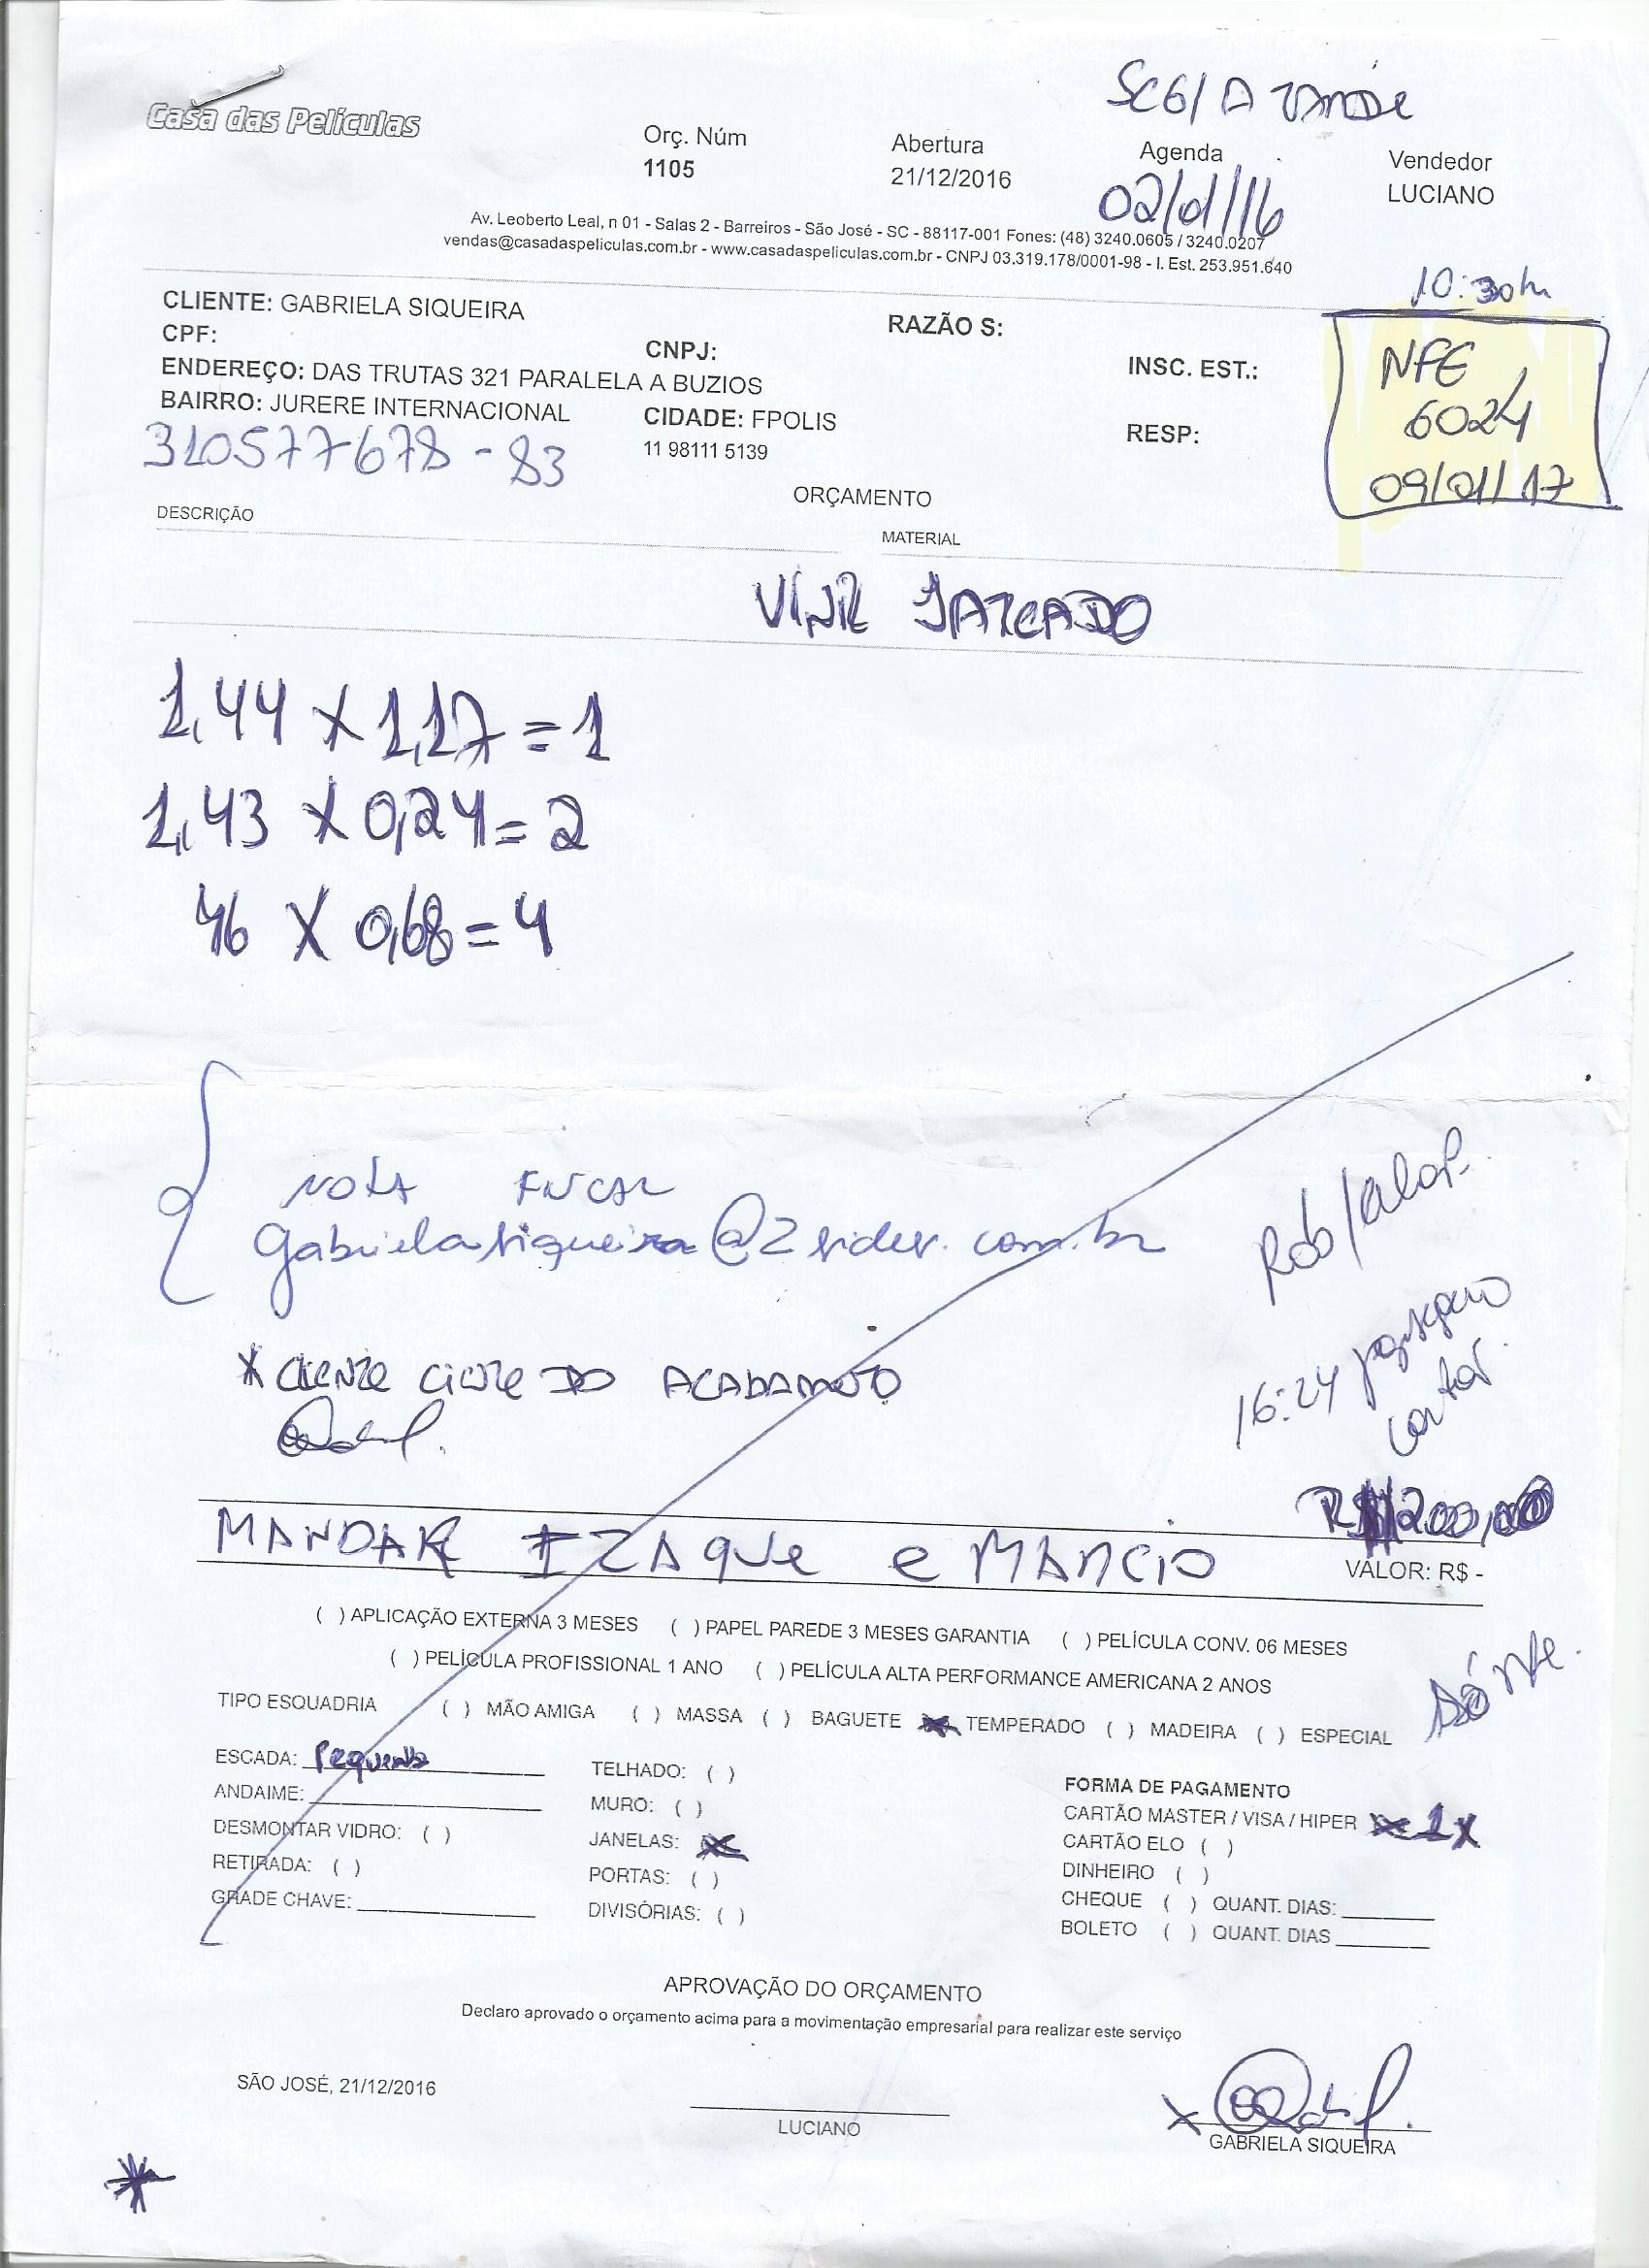 SEG/ A TARDE
Casa das Películas
Orç. Núm Abertura Agenda Vendedor
1105 21/12/2016 02/01/16 LUCIANO
Av. Leoberto Leal, n 01 - Salas 2 - Barreiros - São José - SC - 88117-001 Fones: (48) 3240.0605 / 3240.0207
vendas@casadaspeliculas.com.br - www.casadaspeliculas.com.br - CNPJ 03.319.178/0001-98 - I. Est. 253.951.640
10:30h
CLIENTE: GABRIELA SIQUEIRA RAZÃO S:
CPF: CNPJ: INSC. EST.:
ENDEREÇO: DAS TRUTAS 321 PARALELA A BUZIOS
BAIRRO: JURERE INTERNACIONAL CIDADE: FPOLIS RESP:
310577678-83 11 98111 5139
NFE
6024
09/01/17
ORÇAMENTO
DESCRIÇÃO MATERIAL
VINIL JATEADO
1,44 X 1,17 = 1
1,43 X 0,24 = 2
46 X 0,68 = 4
NOTA FISCAL
gabrielasiqueira@2sider.com.br
Rob/
16:24
* CLIENTE CIENTE DO ACABAMENTO
R$ 1200,00
MANDAR IZAQUE e MARCIO
VALOR: R$ -
( ) APLICAÇÃO EXTERNA 3 MESES ( ) PAPEL PAREDE 3 MESES GARANTIA ( ) PELÍCULA CONV. 06 MESES
( ) PELÍCULA PROFISSIONAL 1 ANO ( ) PELÍCULA ALTA PERFORMANCE AMERICANA 2 ANOS
só nfe.
TIPO ESQUADRIA ( ) MÃO AMIGA ( ) MASSA ( ) BAGUETE (X) TEMPERADO ( ) MADEIRA ( ) ESPECIAL
ESCADA: Pequena TELHADO: ( )
ANDAIME: MURO: ( )
DESMONTAR VIDRO: ( ) JANELAS: (X)
RETIRADA: ( ) PORTAS: ( )
GRADE CHAVE: DIVISÓRIAS: ( )
FORMA DE PAGAMENTO
CARTÃO MASTER / VISA / HIPER (X) 1x
CARTÃO ELO ( )
DINHEIRO ( )
CHEQUE ( ) QUANT. DIAS:
BOLETO ( ) QUANT. DIAS
APROVAÇÃO DO ORÇAMENTO
Declaro aprovado o orçamento acima para a movimentação empresarial para realizar este serviço
SÃO JOSÉ, 21/12/2016
X
LUCIANO GABRIELA SIQUEIRA
*